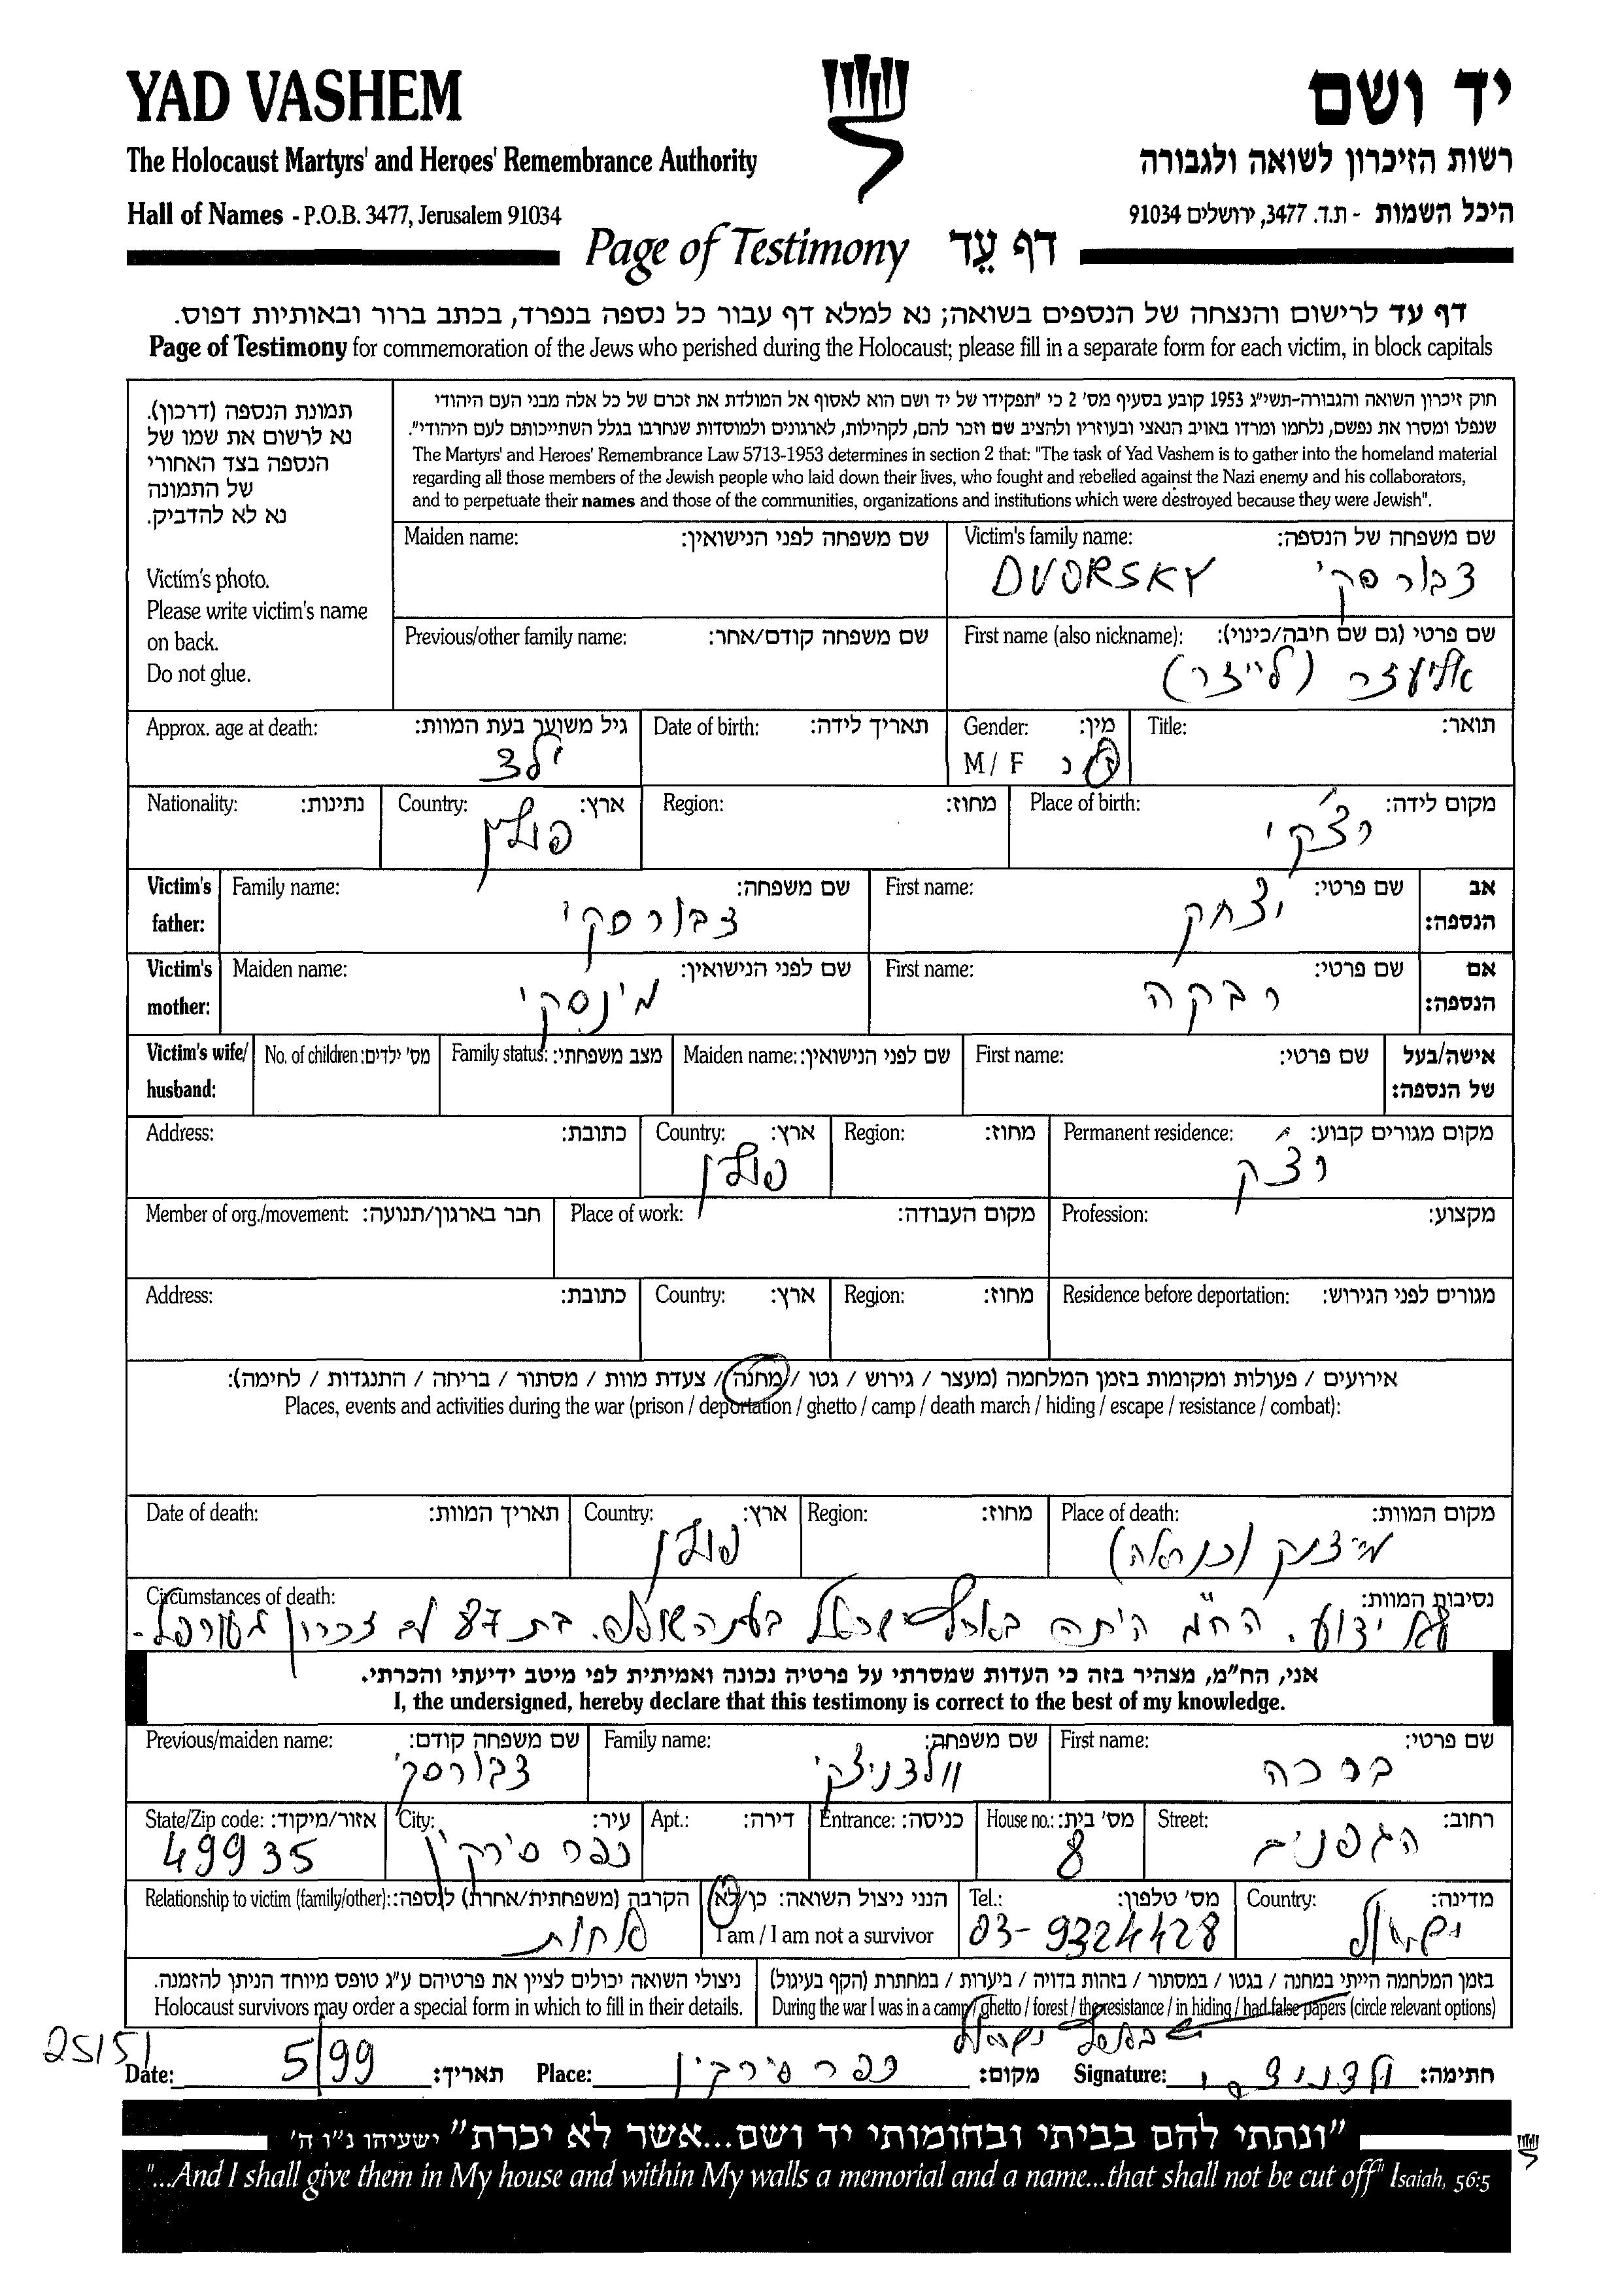 YAD VASHEM
יד ושם
The Holocaust Martyrs' and Heroes' Remembrance Authority
רשות הזיכרון לשואה ולגבורה
Hall of Names - P.O.B. 3477, Jerusalem 91034
היכל השמות - ת.ד. 3477, ירושלים 91034
Page of Testimony דף עֵד
דף עד לרישום והנצחה של הנספים בשואה; נא למלא דף עבור כל נספה בנפרד, בכתב ברור ובאותיות דפוס.
Page of Testimony for commemoration of the Jews who perished during the Holocaust; please fill in a separate form for each victim, in block capitals
תמונת הנספה (דרכון).
נא לרשום את שמו של
הנספה בצד האחורי
של התמונה
נא לא להדביק.
Victim's photo.
Please write victim's name
on back.
Do not glue.
חוק זיכרון השואה והגבורה-תשי"ג 1953 קובע בסעיף מס' 2 כי "תפקידו של יד ושם הוא לאסוף אל המולדת את זכרם של כל אלה מבני העם היהודי
שנפלו ומסרו את נפשם, נלחמו ומרדו באויב הנאצי ובעוזריו ולהציב שם וזכר להם, לקהילות, לארגונים ולמוסדות שנחרבו בגלל השתייכותם לעם היהודי".
The Martyrs' and Heroes' Remembrance Law 5713-1953 determines in section 2 that: "The task of Yad Vashem is to gather into the homeland material
regarding all those members of the Jewish people who laid down their lives, who fought and rebelled against the Nazi enemy and his collaborators,
and to perpetuate their names and those of the communities, organizations and institutions which were destroyed because they were Jewish".
Maiden name: שם משפחה לפני הנישואין: Victim's family name: שם משפחה של הנספה:
DVORSKY דבורסקי
Previous/other family name: שם משפחה קודם/אחר: First name (also nickname): שם פרטי (גם שם חיבה/כינוי):
אליעזר (לייזר)
Approx. age at death: גיל משוער בעת המוות: Date of birth: תאריך לידה: Gender: מין: Title: תואר:
ילד M / F ז נ
Nationality: נתינות: Country: ארץ: Region: מחוז: Place of birth: מקום לידה:
פולין רצ'קי
Victim's father: Family name: שם משפחה: First name: שם פרטי: אב הנספה:
דבורסקי יצחק
Victim's mother: Maiden name: שם לפני הנישואין: First name: שם פרטי: אם הנספה:
מינסקי רבקה
Victim's wife/ husband: No. of children: מס' ילדים: Family status: מצב משפחתי: Maiden name: שם לפני הנישואין: First name: שם פרטי: אישה/בעל של הנספה:
Address: כתובת: Country: ארץ: Region: מחוז: Permanent residence: מקום מגורים קבוע:
פולין רצ'ק
Member of org./movement: חבר בארגון/תנועה: Place of work: מקום העבודה: Profession: מקצוע:
Address: כתובת: Country: ארץ: Region: מחוז: Residence before deportation: מגורים לפני הגירוש:
אירועים / פעולות ומקומות בזמן המלחמה (מעצר / גירוש / גטו / מחנה / צעדת מוות / מסתור / בריחה / התנגדות / לחימה):
Places, events and activities during the war (prison / deportation / ghetto / camp / death march / hiding / escape / resistance / combat):
Date of death: תאריך המוות: Country: ארץ: Region: מחוז: Place of death: מקום המוות:
פולין מידנק (כנראה)
Circumstances of death: נסיבות המוות:
לא ידוע. החמ היתה בארץ ישראל בעת השואה. בת 87 עם זכרון מעורפל.
אני, הח"מ, מצהיר בזה כי העדות שמסרתי על פרטיה נכונה ואמיתית לפי מיטב ידיעתי והכרתי.
I, the undersigned, hereby declare that this testimony is correct to the best of my knowledge.
Previous/maiden name: שם משפחה קודם: Family name: שם משפחה: First name: שם פרטי:
דבורסקי וולדניצקי ברכה
State/Zip code: אזור/מיקוד: City: עיר: Apt.: דירה: Entrance: כניסה: House no.: מס' בית: Street: רחוב:
49935 כפר סירקין 8 הגפנים
Relationship to victim (family/other): הקרבה (משפחתית/אחרת) לנספה: הנני ניצול השואה: כן/לא Tel.: מס' טלפון: Country: מדינה:
אחות I am / I am not a survivor 03-9324428 ישראל
ניצולי השואה יכולים לציין את פרטיהם ע"ג טופס מיוחד הניתן להזמנה.
Holocaust survivors may order a special form in which to fill in their details.
בזמן המלחמה הייתי במחנה / בגטו / במסתור / בזהות בדויה / ביערות / במחתרת (הקף בעיגול)
During the war I was in a camp / ghetto / forest / the resistance / in hiding / had false papers (circle relevant options)
בארץ ישראל
25/5/
Date: 5/99 תאריך: Place: כפר סירקין מקום: Signature: חתימה:
"ונתתי להם בביתי ובחומותי יד ושם...אשר לא יכרת" ישעיהו נ"ו ה'
"...And I shall give them in My house and within My walls a memorial and a name...that shall not be cut off" Isaiah, 56:5